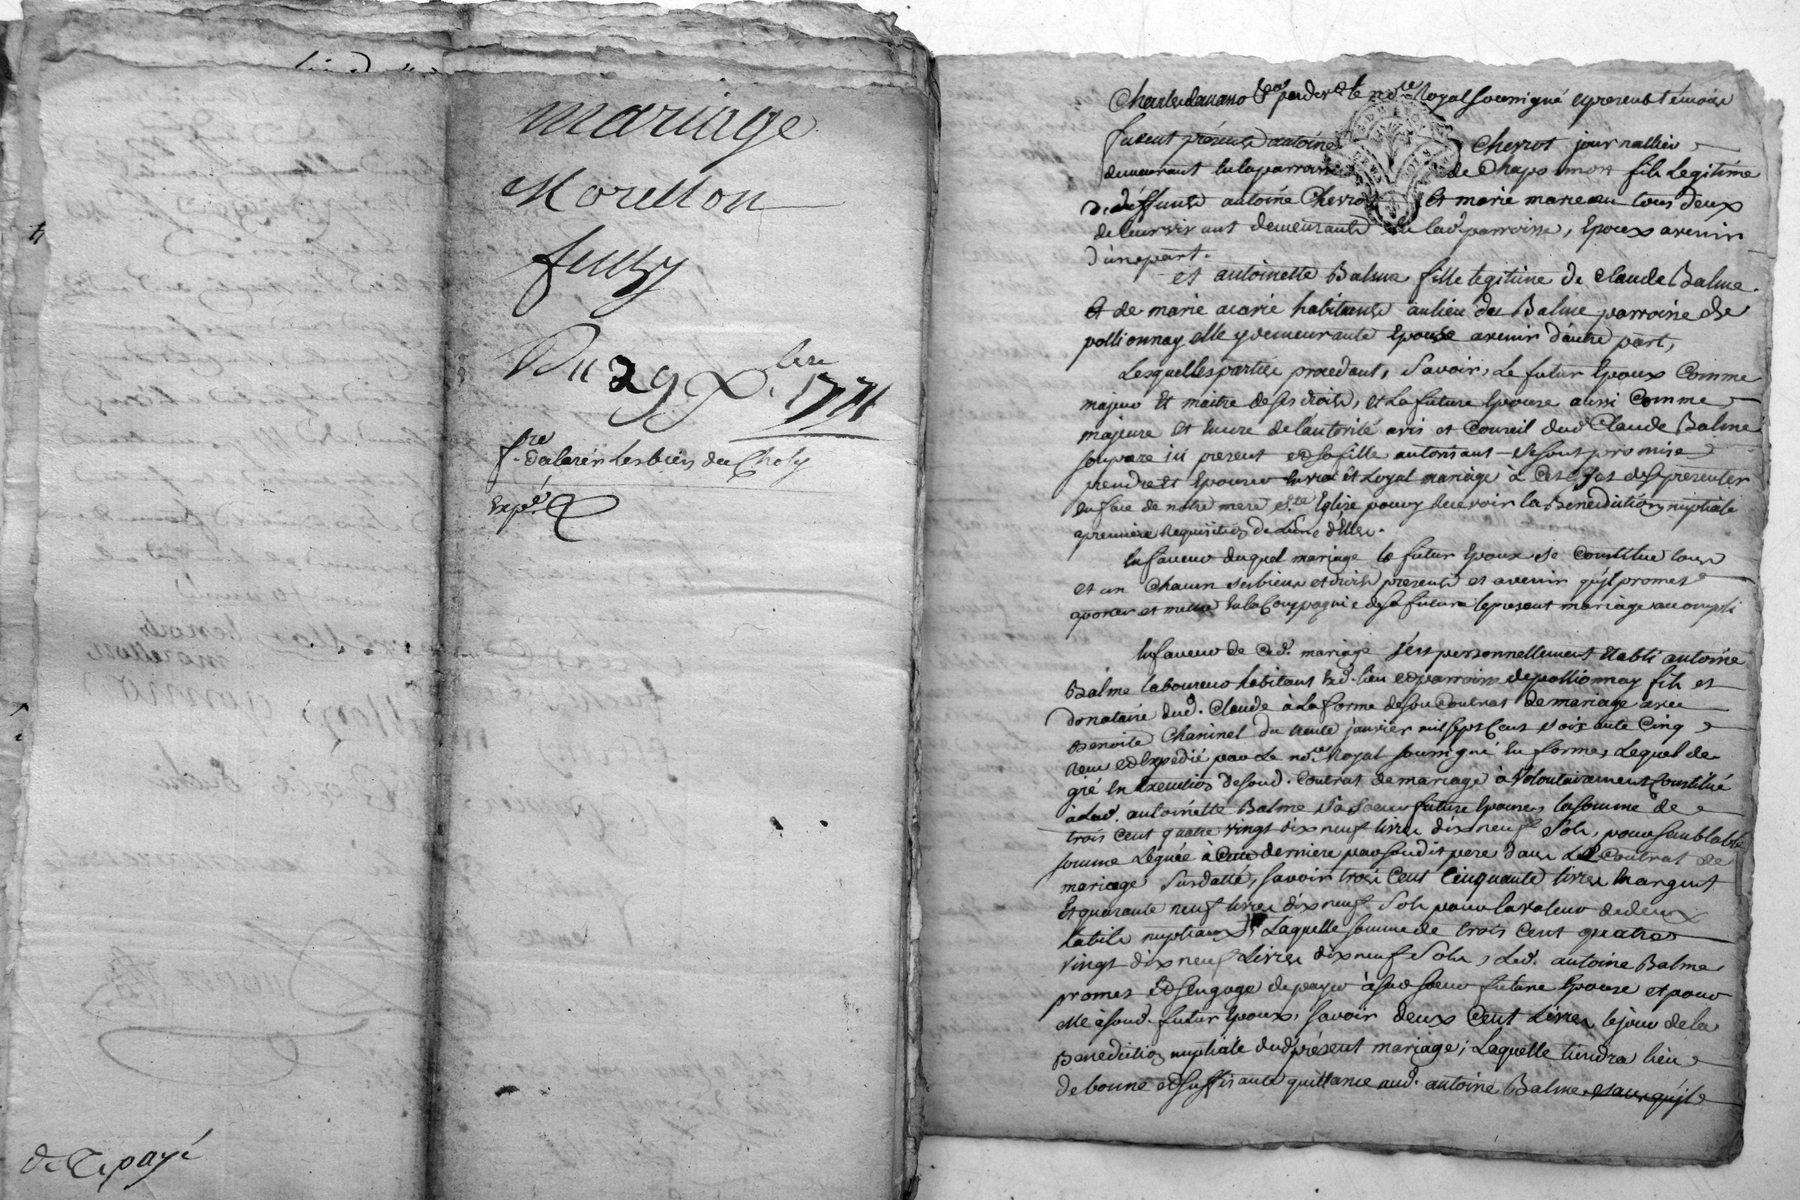 mariage
Morellon
fussy
Du 29 Xbre 1774
déclarer les biens du
Expé
de Ce payé
pardevant le nore Royal soussigné et presents témoins
furent présents antoine Cherrot journallier
demeurant en la parroisse de Chaponnost fils Legitime
de deffunts antoine Cherrot et marie mareau tous deux
de leur vivant demeurants en lad. parroisse, Epoux avenir
d'une part.
et antoinette Balme fille legitime de Claude Balme
et de marie acarie habitants au lieu du Balme parroisse de
pollionnay elle y demeurante Epouse avenir d'autre part,
Lesquelles parties procedant, Savoir, Le futur Epoux Comme
majeur Et maitre de ses droits, et La future Epouse aussi Comme
majeure et encore de l'autorité avis et Conseil dud. Claude Balme
son pere ici present et sa fille autorisant se sont promis
prendre et Epouser en vrai et Loyal mariage à Cet effet de se presenter
en face de notre mere Ste Eglise pour y recevoir la Benediction nuptiale
a premiere Requisition de L'un d'Eux.
En faveur duquel mariage le futur Epoux se Constitue tous
et un Chacun ses biens et droits presents et avenir qu'il promet
aporter et mettre en la Compagnie de sa future le present mariage accompli
En faveur de Ced. mariage s'est personnellement Etabli antoine
Balme laboureur habitant aud. lieu et parroisse de pollionnay fils et
donataire dud. Claude à La forme de son Contrat de mariage avec
Benoite Chaninel du trente janvier mil sept Cent soixante Cinq
reçu et Expedié par Le nore Royal soussigné En forme, Lequel de
gré En Execution de sond. Contrat de mariage à Volontairement Constitué
à lad. antoinette Balme sa soeur future Epouse, la somme de
trois Cent quatre vingt dix neuf livres dix neuf Sols, pour semblable
somme Léguée à Cette derniere par sondit pere dans Led. Contrat de
mariage Susdatté, savoir trois Cent Cinquante livres En argent
Et quarante neuf livres dix neuf Sols pour la valeur de deux
habits nuptiaux, Laquelle somme de trois Cent quatre
vingt dix neuf Livres dix neuf Sols, Led. antoine Balme
promet Et s'engage de payer à sad. soeur future Epouse et pour
elle à sond. futur Epoux, savoir deux Cent Livres le jour de la
Benediction nuptiale dud. présent mariage; Laquelle tiendra lieu
de bonne et suffisante quittance aud. antoine Balme